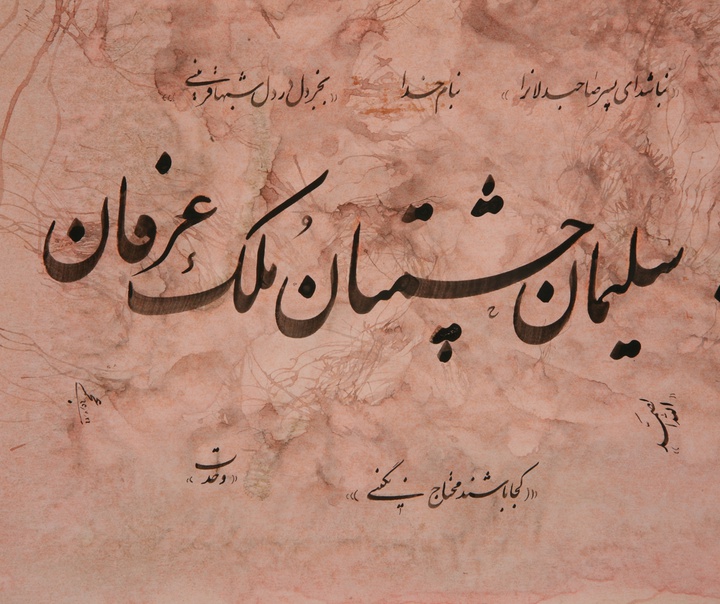 «نباشد ای پسر صاحبدلان را
بنام خدا
بجز دل در دل شبها قرینی»
سلیمان حشمتان مُلک عرفان
«الله الصمد»
«کجا باشند محتاج نگینی»
«وحدت»